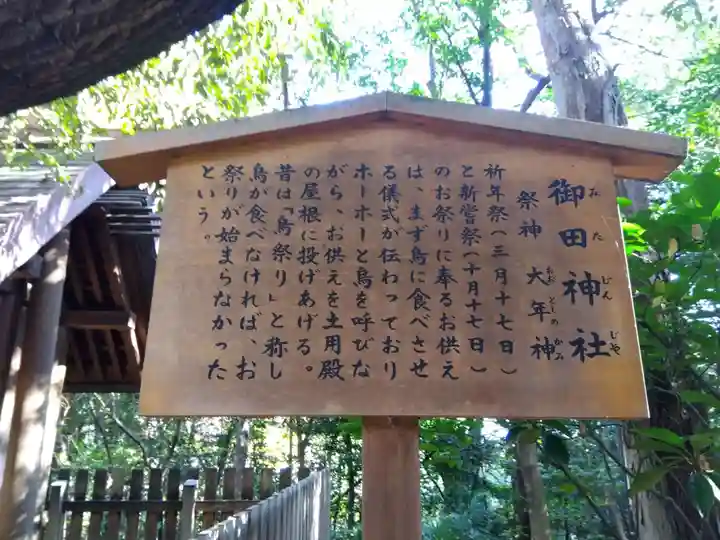 御田神社
みた じんじゃ
祭神 大年神
おおとしのかみ
祈年祭(三月十七日)
と新嘗祭(十一月十七日)
のお祭りに奉るお供え
は、まず烏に食べさせ
る儀式が伝わっており
ホーホーと烏を呼びな
がら、お供えを土用殿
の屋根に投げあげる。
昔は「烏祭り」と称し
烏が食べなければ、お
祭りが始まらなかった
という。